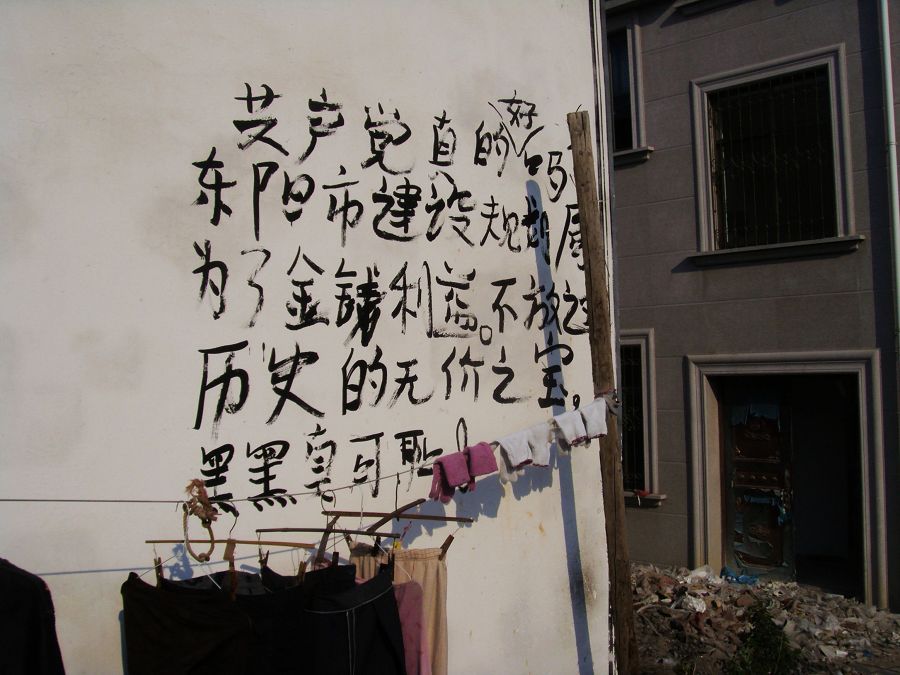 共产党真的好吗
东阳市建设规划局
为了金钱利益。不放
历史的无价之宝。
黑黑可耻!